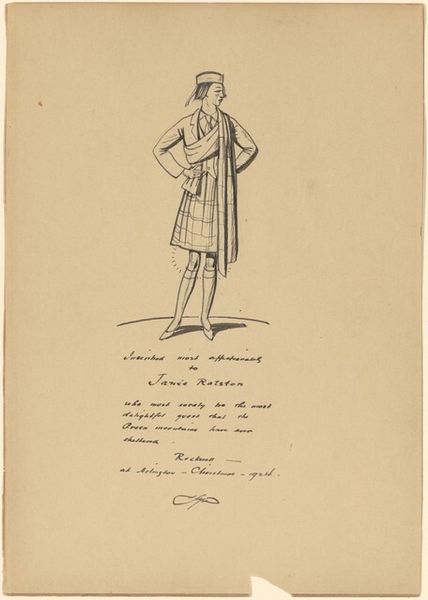 Inscribed most affectionately
to
Janie Ralston
who most surely be the most
delightful guest that the
Green mountains have ever
sheltered.
Rockwell —
at Arlington – Christmas – 192